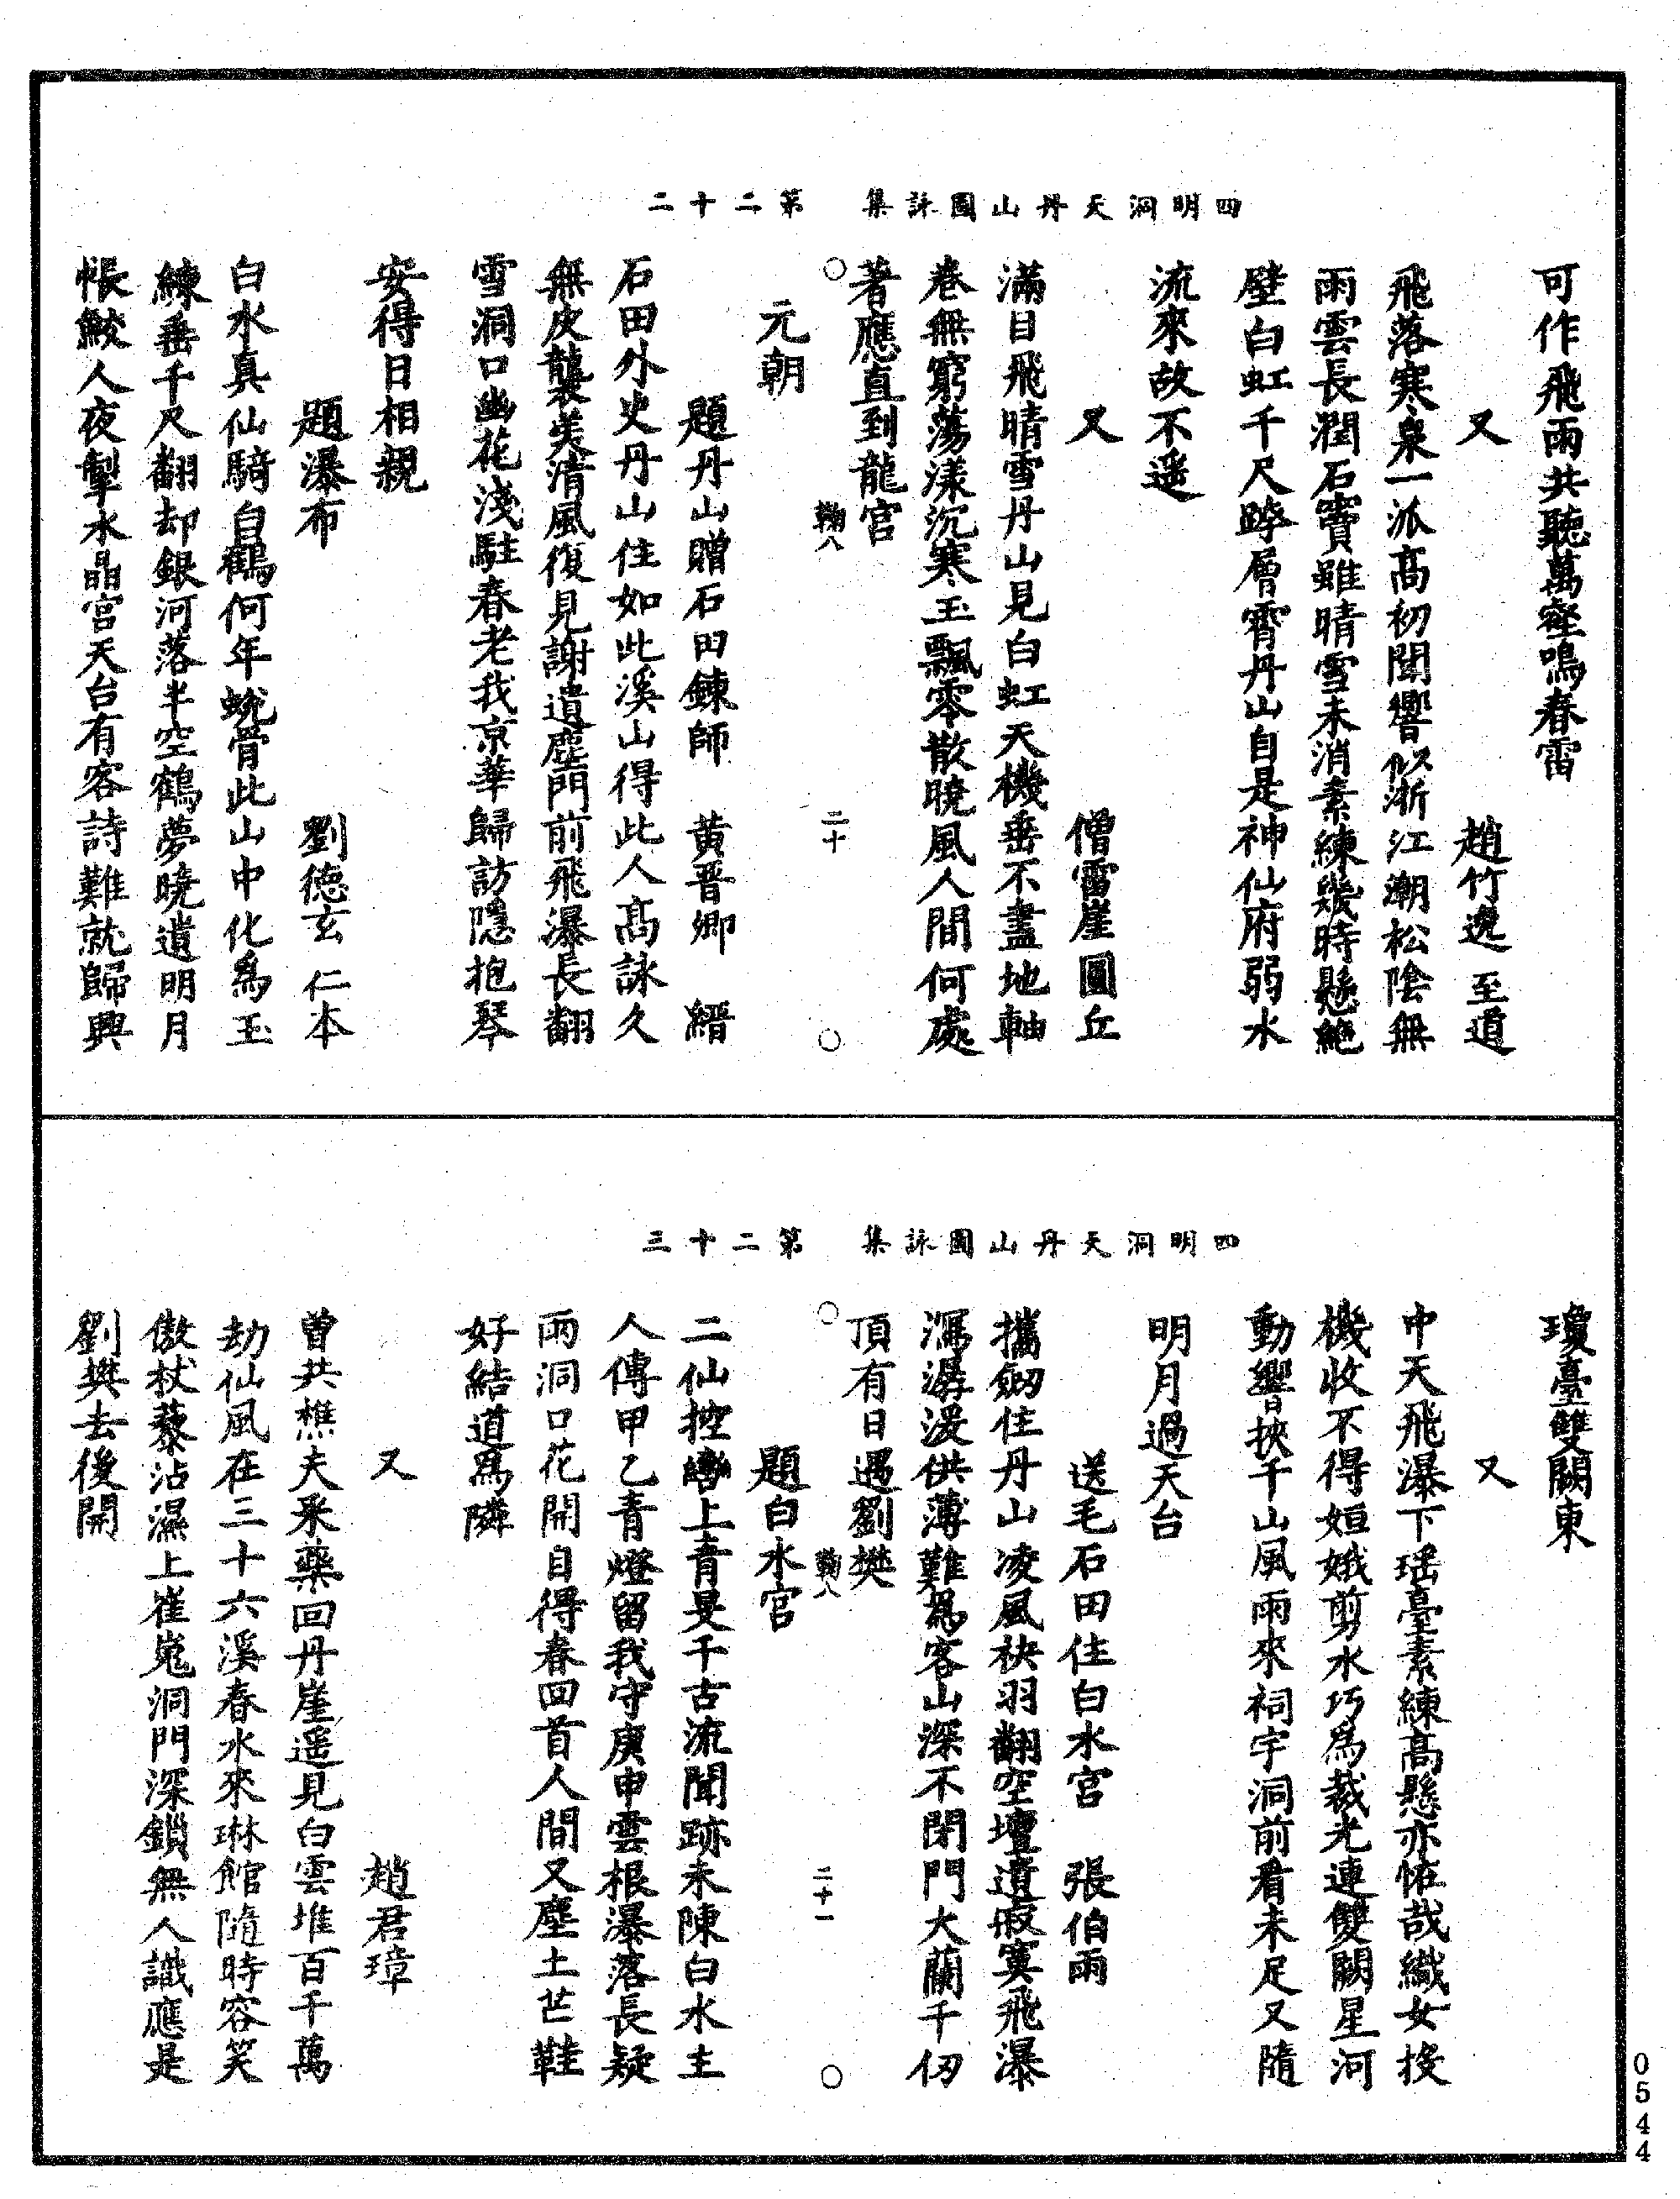 四明洞天丹山圖詠集　第二十二
可作飛雨共聽萬壑鳴春雷
又　趙竹邊　至道
飛落寒泉一派高初聞響似浙江潮松陰無
雨雲長潤石竇雖晴雪未消素練幾時懸絕
壁白虹千尺跨層霄丹山自是神仙府弱水
流來故不遥
又　僧雷崖圓丘
滿目飛晴雪丹山見白虹天機垂不盡地軸
卷無窮蕩漾沉寒玉飄零散曉風人間何處
著應直到龍宮
鞠八　二十
元朝
題丹山贈石田鍊師　黃晋卿　縉
石田外史丹山住如此溪山得此人高詠久
無皮襲美清風復見謝遺塵門前飛瀑長翻
雪洞口幽花淺駐春老我京華歸訪隱抱琴
安得日相親
題瀑布　劉德玄　仁本
白水真仙騎白鶴何年蛻骨此山中化爲玉
練垂千尺翻却銀河落半空鶴夢曉遺明月
帳鮫人夜掣水晶宮天台有客詩難就歸興
四明洞天丹山圖詠集　第二十三
瓊臺雙闕東
又
中天飛瀑下瑤臺素練高懸亦怪哉織女投
機收不得姮娥剪水巧爲裁光連雙闕星河
動響挾千山風雨來祠宇洞前看未足又隨
明月過天台
送毛石田住白水宮　張伯雨
攜劒住丹山凌風袂羽翻空壇遺寂寞飛瀑
漏潺湲供薄難爲客山深不閉門大蘭千仞
頂有日遇劉樊
鞠八　二十一
題白水宮
二仙控轡上青旻千古流聞跡未陳白水主
人傳甲乙青燈留我守庚申雲根瀑落長疑
雨洞口花開自得春回首人間又塵土芒鞋
好結道爲隣
又　趙君璋
曾共樵夫釆藥回丹崖遥見白雲堆百千萬
劫仙風在三十六溪春水來琳館隨時容笑
傲杖藜沾濕上崔嵬洞門深鎖無人識應是
劉樊去後開
0544